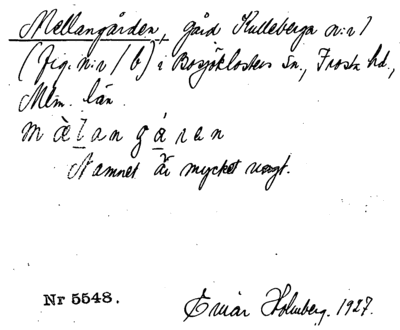 Mellangården, gård Kulleberga n:r 1
(fig. n:r 1 b) i Bosjöklosters sn., Frosta hd.,
Mlm. län.
mȧ̀lan gǻren
Namnet är mycket vagt.
Nr 5548.
Einar Holmberg. 1927.